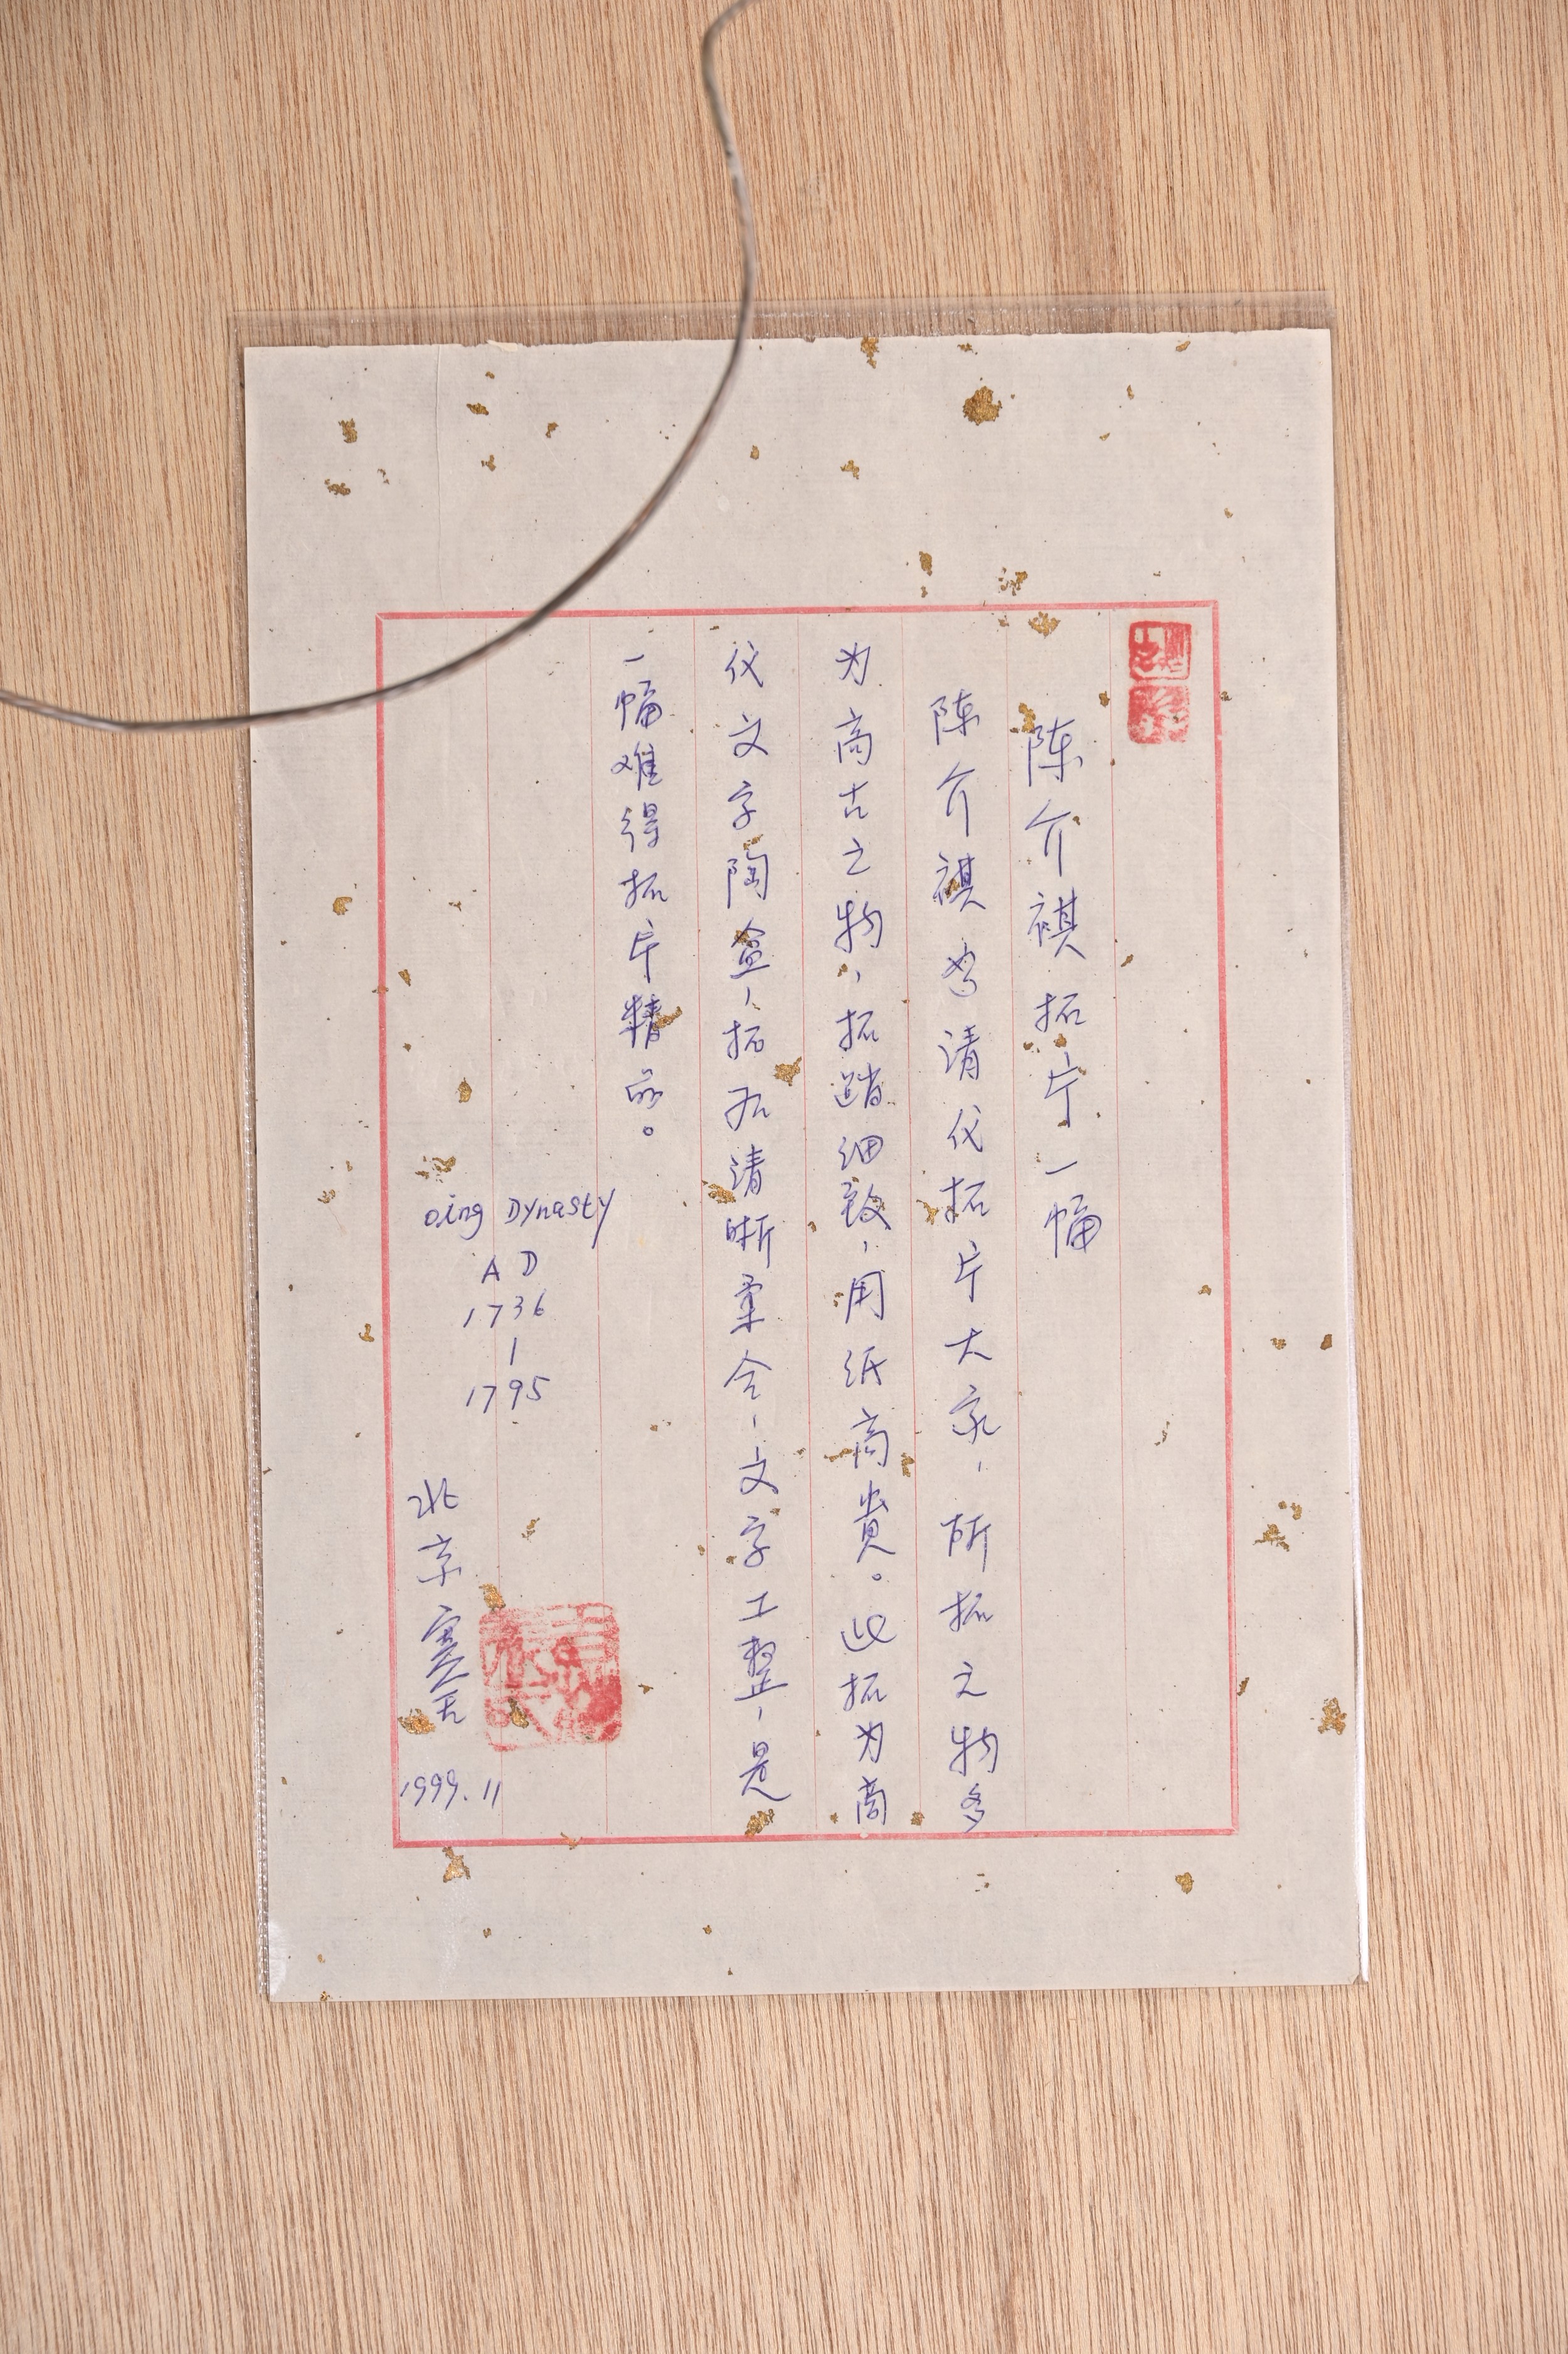 陈介祺拓片一幅
陈介祺为清代拓片大家，所拓之物多
为高古之物，拓蹟细致，用纸高贵。此拓为商
代文字陶盒，拓石清晰彙合，文字工整，是
一幅难得拓片精品。
Qing Dynasty
AD
1736
|
1795
北京
1999.11